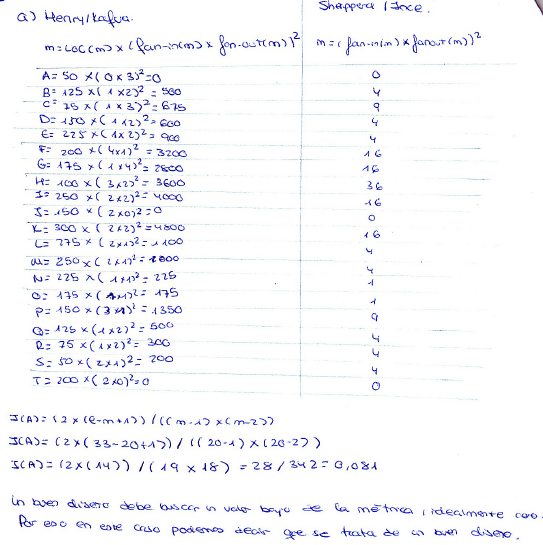 a) Henry/Kafura. Shepperd / Ince.
m = LOC(m) x (fan-in(m) x fan-out(m))² m = (fan-in(m) x fanout(m))²
A = 50 x (0 x 3)² = 0 0
B = 125 x (1 x 2)² = 500 4
C = 75 x (1 x 3)² = 675 9
D = 150 x (1 x 2)² = 600 4
E = 225 x (1 x 2)² = 900 4
F = 200 x (4x1)² = 3200 16
G = 175 x (1 x 4)² = 2800 16
H = 100 x (3 x 2)² = 3600 36
I = 250 x (2 x 2)² = 4000 16
J = 150 x (2 x 0)² = 0 0
K = 300 x (2 x 2)² = 4800 16
L = 275 x (2x1)² = 1100 4
M = 250 x (2 x 1)² = 1000 4
N = 225 x (1 x 1)² = 225 1
O = 175 x (1x1)² = 175 1
P = 150 x (3 x 1)² = 1350 9
Q = 125 x (1 x 2)² = 500 4
R = 75 x (1 x 2)² = 300 4
S = 50 x (2 x 1)² = 200 4
T = 200 x (2 x 0)² = 0 0
I(A) = (2 x (e-n+1)) / ((n-1) x (n-2))
I(A) = (2 x (33-20+1)) / ((20-1) x (20-2))
I(A) = (2 x (14)) / (19 x 18) = 28 / 342 = 0,081
Un buen diseño debe buscar un valor bajo de la métrica, idealmente cero.
Por eso en este caso podemos decir que se trata de un buen diseño.